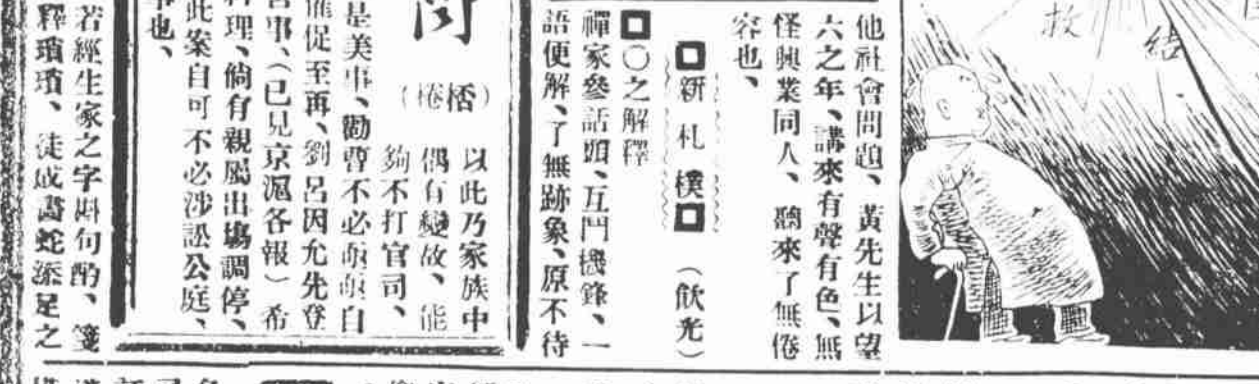 救
結
他社會問題、黃先生以望
六之年、講來有聲有色、無
怪興業同人、聽來了無倦
容也、
新札樸
（飲光）
〇之解釋
禪家參話頭、互鬥機鋒、一
語便解、了無跡象、原不待
（桰棬）
以此乃家族中
偶有變故、能
夠不打官司、
是美事、勸蓉不必
自
催促至再、劉呂因允先登
官事、（已見京滬各報）希
料理、倘有親屬出場調停、
此案自可不必涉訟公庭、
事也、
若經生家之字斟句酌、箋
釋瑣瑣、徒成畫蛇添足之